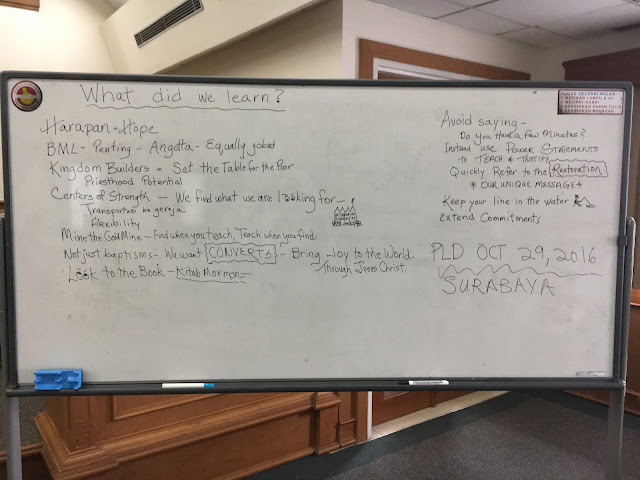 What did we learn?
Harapan - Hope
BML - Penting - Anggota - Equally yoked
Kingdom Builders - Set the Table for the Poor
Priesthood Potential
Centers of Strength - We find what we are looking for -
Transportasi ke gereja
Flexibility
Mine the Gold Mine - Find when you teach, Teach when you find.
Not just baptisms - We want CONVERTS - Bring Joy to the World
through Jesus Christ
Look to the Book - Kitab Mormon
Avoid saying -
Do you have a few minutes?
Instead use Power STATEMENTS
To TEACH & TESTIFY
Quickly Refer to the Restoration
& OUR UNIQUE MESSAGE
Keep your line in the water
Extend Commitments
PLD OCT 29, 2016
SURABAYA